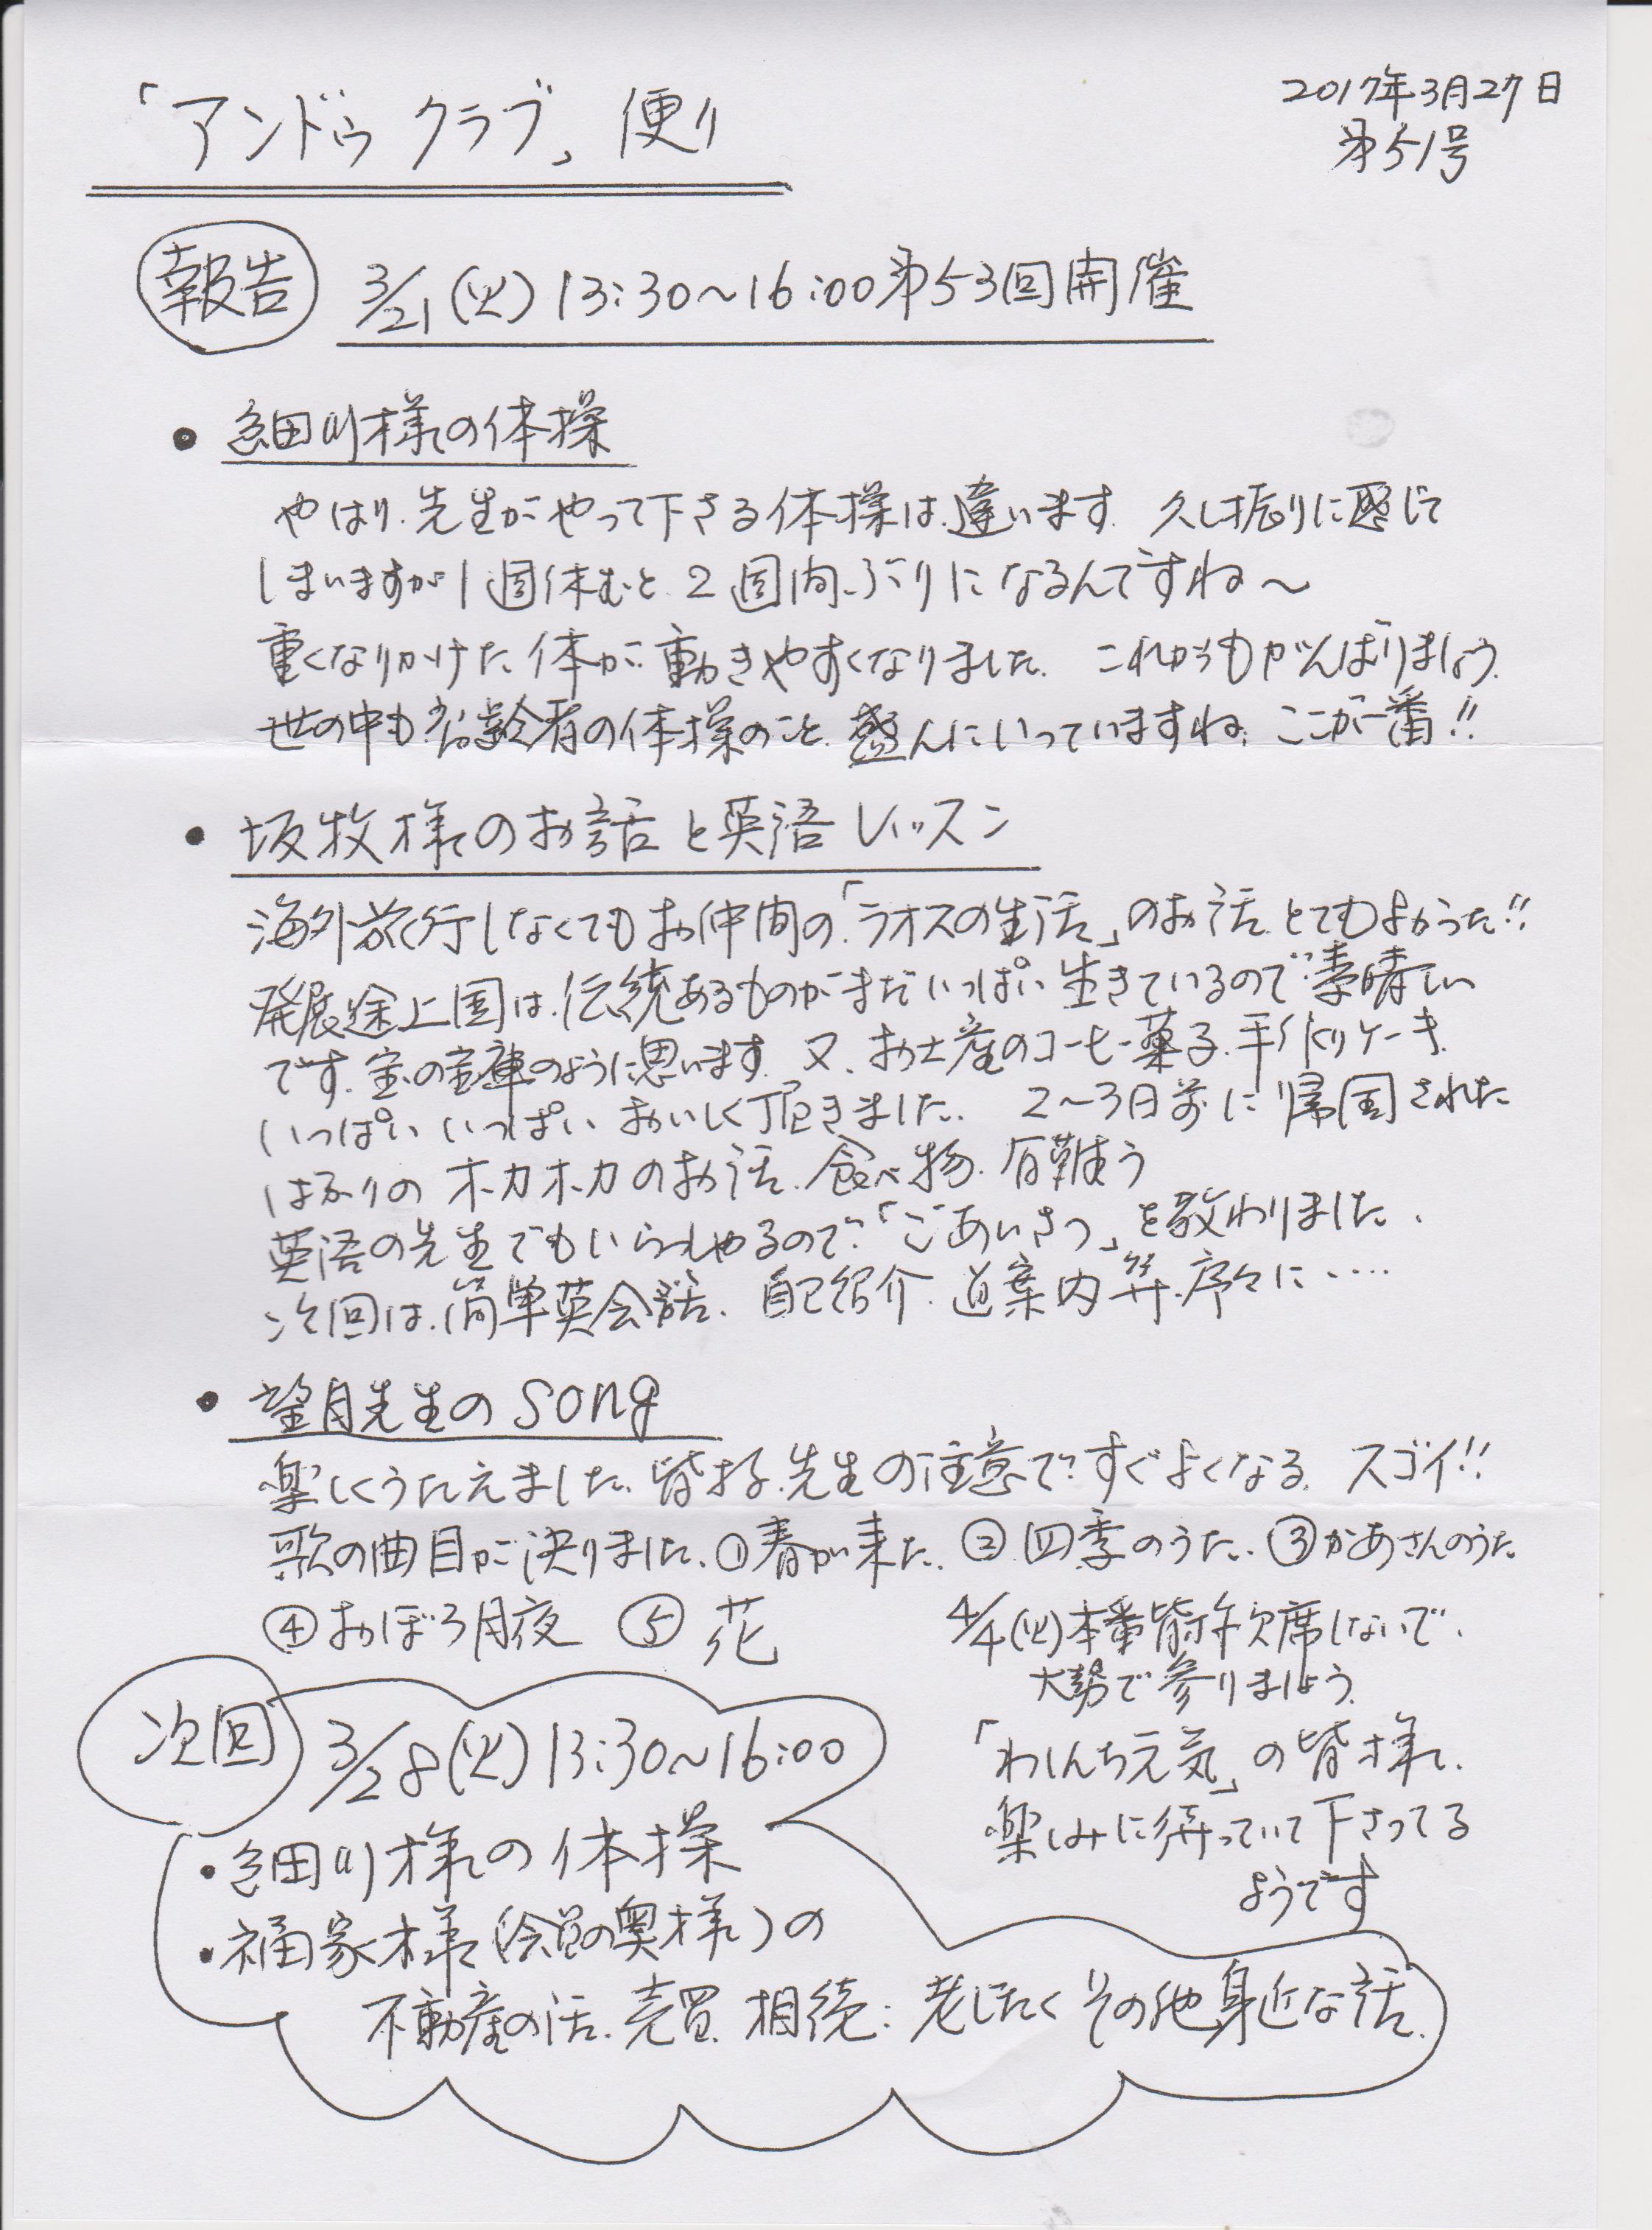 「アンドゥ クラブ」便り
2017年3月27日
第51号
報告
3/21(火)13:30〜16:00第53回開催
• 細川様の体操
やはり、先生がやって下さる体操は、違います。久し振りに感じて
しまいますが1週休むと、2週間ぶりになるんですね〜
重くなりかけた、体が、動きやすくなりました。これからもがんばりましょう。
世の中も、高齢者の体操のこと、盛んにいっていますね、ここが一番!!
• 坂牧様のお話と英語レッスン
海外旅行しなくてもお仲間の、「ラオスの生活」のお話、とてもよかった!!
発展途上国は、伝統あるものがまだいっぱい生きているので、素晴しい
です。宝の宝庫のように思います。又、お土産のコーヒー、菓子、手作りケーキ、
いっぱい、いっぱい、おいしく頂きました。2〜3日前に帰国された
ばかりの ホカホカのお話、食べ物、有難う
英語の先生でもいらっしゃるので、「ごあいさつ」を教わりました。
次回は、簡単英会話、自己紹介、道案内等、序々に‥‥
• 望月先生のsong
楽しくうたえました。皆様、先生の注意で、すぐよくなる、スゴイ!!
歌の曲目が決りました。①春が来た、②四季のうた、③かあさんのうた
④おぼろ月夜 ⑤ 花
4/4(火)本番皆様欠席しないで、
大勢で参りましょう。
「わしんち元気」の皆様、
楽しみに待っていて下さってる
ようです
次回
3/28(火)13:30〜16:00
• 細川様の体操
• 福家様(会員の奥様)の
不動産の話、売買、相続、老じたく その他、身近な話。